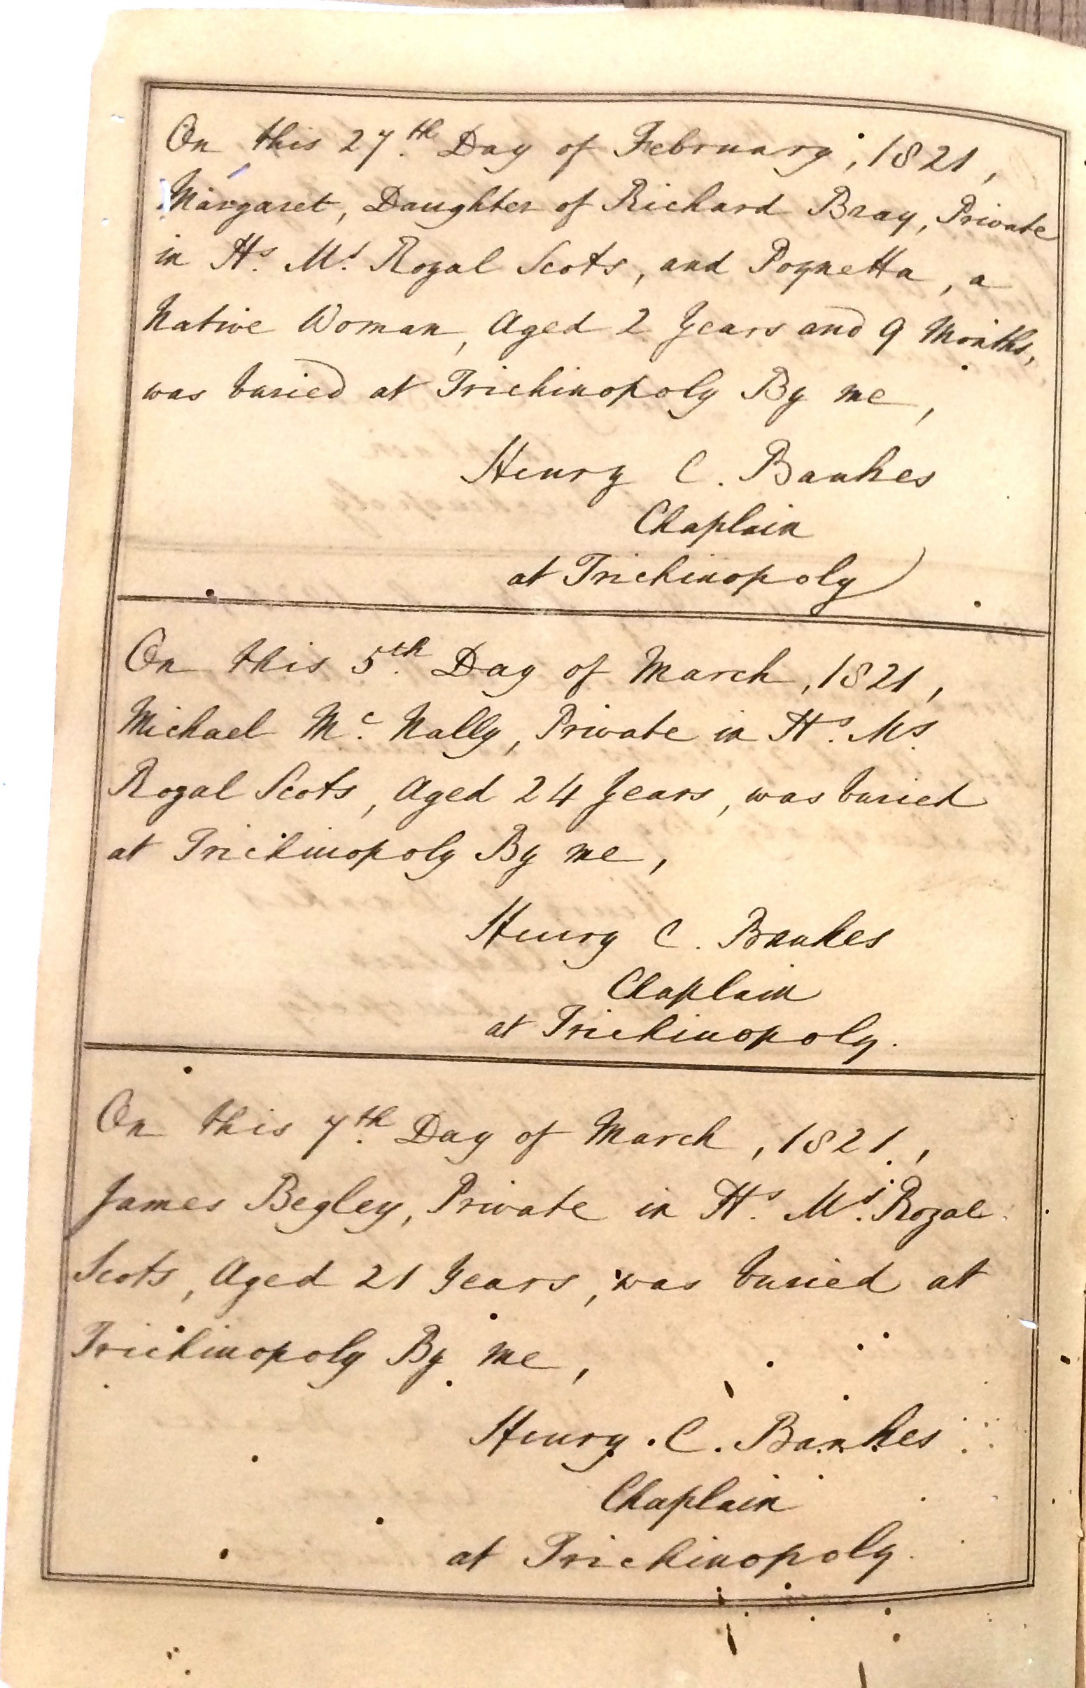 On this 27th Day of February, 1821,
Margaret, Daughter of Richard Bray, Private
in Hs. Ms. Royal Scots, and Poynetta, a
Native Woman, Aged 2 Years and 9 Months,
was buried at Trichinopoly By me,
Henry C. Bankes
Chaplain
at Trichinopoly
On this 5th Day of March, 1821,
Michael Mc. Nally, Private in Hs. Ms.
Royal Scots, Aged 24 Years, was buried
at Trichinopoly By me,
Henry C. Bankes
Chaplain
at Trichinopoly.
On this 7th Day of March, 1821,
James Begley, Private in Hs. Ms. Royal
Scots, Aged 21 Years, was buried at
Trichinopoly By me,
Henry C. Bankes
Chaplain
at Trichinopoly.